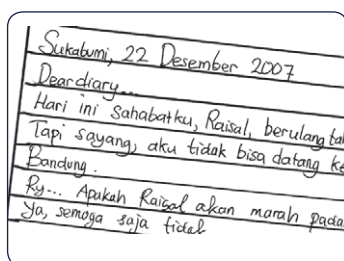 Sukabumi, 22 Desember 2007
Dear diary...
Hari ini sahabatku, Raisal, berulang ta
Tapi sayang, aku tidak bisa datang ke
Bandung.
Ry... Apakah Raisal akan marah pada
ya, semoga saja tidak